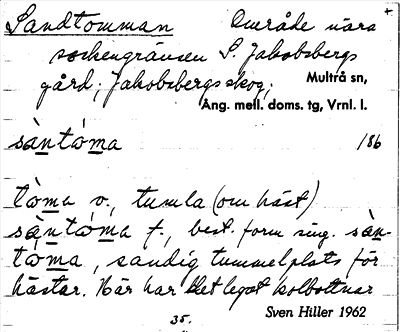 Sandtomman Område nära +
sockengränsen S. Jakobsbergs
gård; Jakobsbergsskog; Multrå sn,
Ång. mell. doms. tg, Vrnl. l.
sàntóma 186
tòma v., tumla (om häst)
sàntóma f., best. form sing. sàn-
tóma, sandig tummelplats för
hästar. Här har det legat kolbottnar
35. Sven Hiller 1962